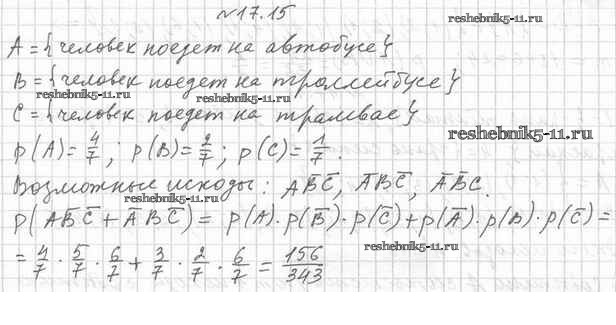 №17.15
reshebnik5-11.ru
A = {человек поедет на автобусе}
B = {человек поедет на троллейбусе}
reshebnik5-11.ru reshebnik5-11.ru
C = {человек поедет на трамвае}
reshebnik5-11.ru
p(A) = 4/7; p(B) = 2/7; p(C) = 1/7.
Возможные исходы: AB̅C̅, A̅BC̅, A̅B̅C.
reshebnik5-11.ru
p(AB̅C̅ + A̅BC̅) = p(A)·p(B̅)·p(C̅) + p(A̅)·p(B)·p(C̅) =
reshebnik5-11.ru
= 4/7 · 5/7 · 6/7 + 3/7 · 2/7 · 6/7 = 156/343